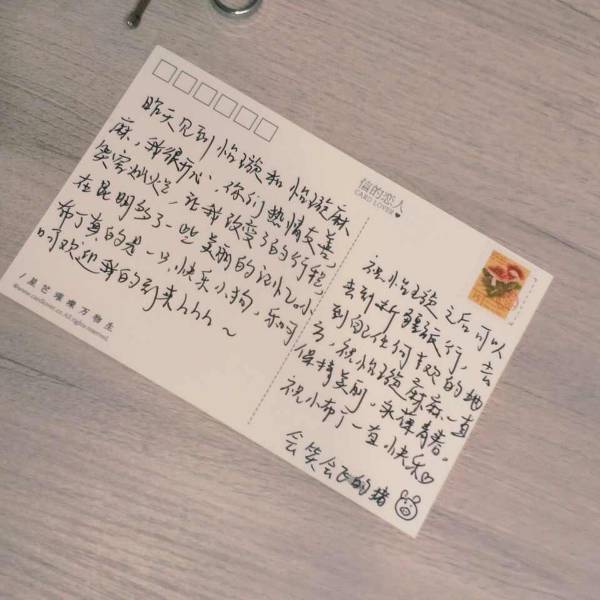 昨天见到怡璇和怡璇麻
麻,我很开心,你们热情友善,
笑容灿烂,让我改变了的行程,
在昆明多了一些美丽的记忆。小
布丁真的是一只快乐小狗,乐呵
呵欢迎我的到来hhh~
/星芒璀璨万物生
信的恋人
CARD LOVER
祝怡璇之后可以
去到新疆旅行,去
到自己任何喜欢的地
方,祝怡璇麻麻一直
保持美丽,永葆青春。
祝小布丁一直快乐♡
会笑会飞的猪